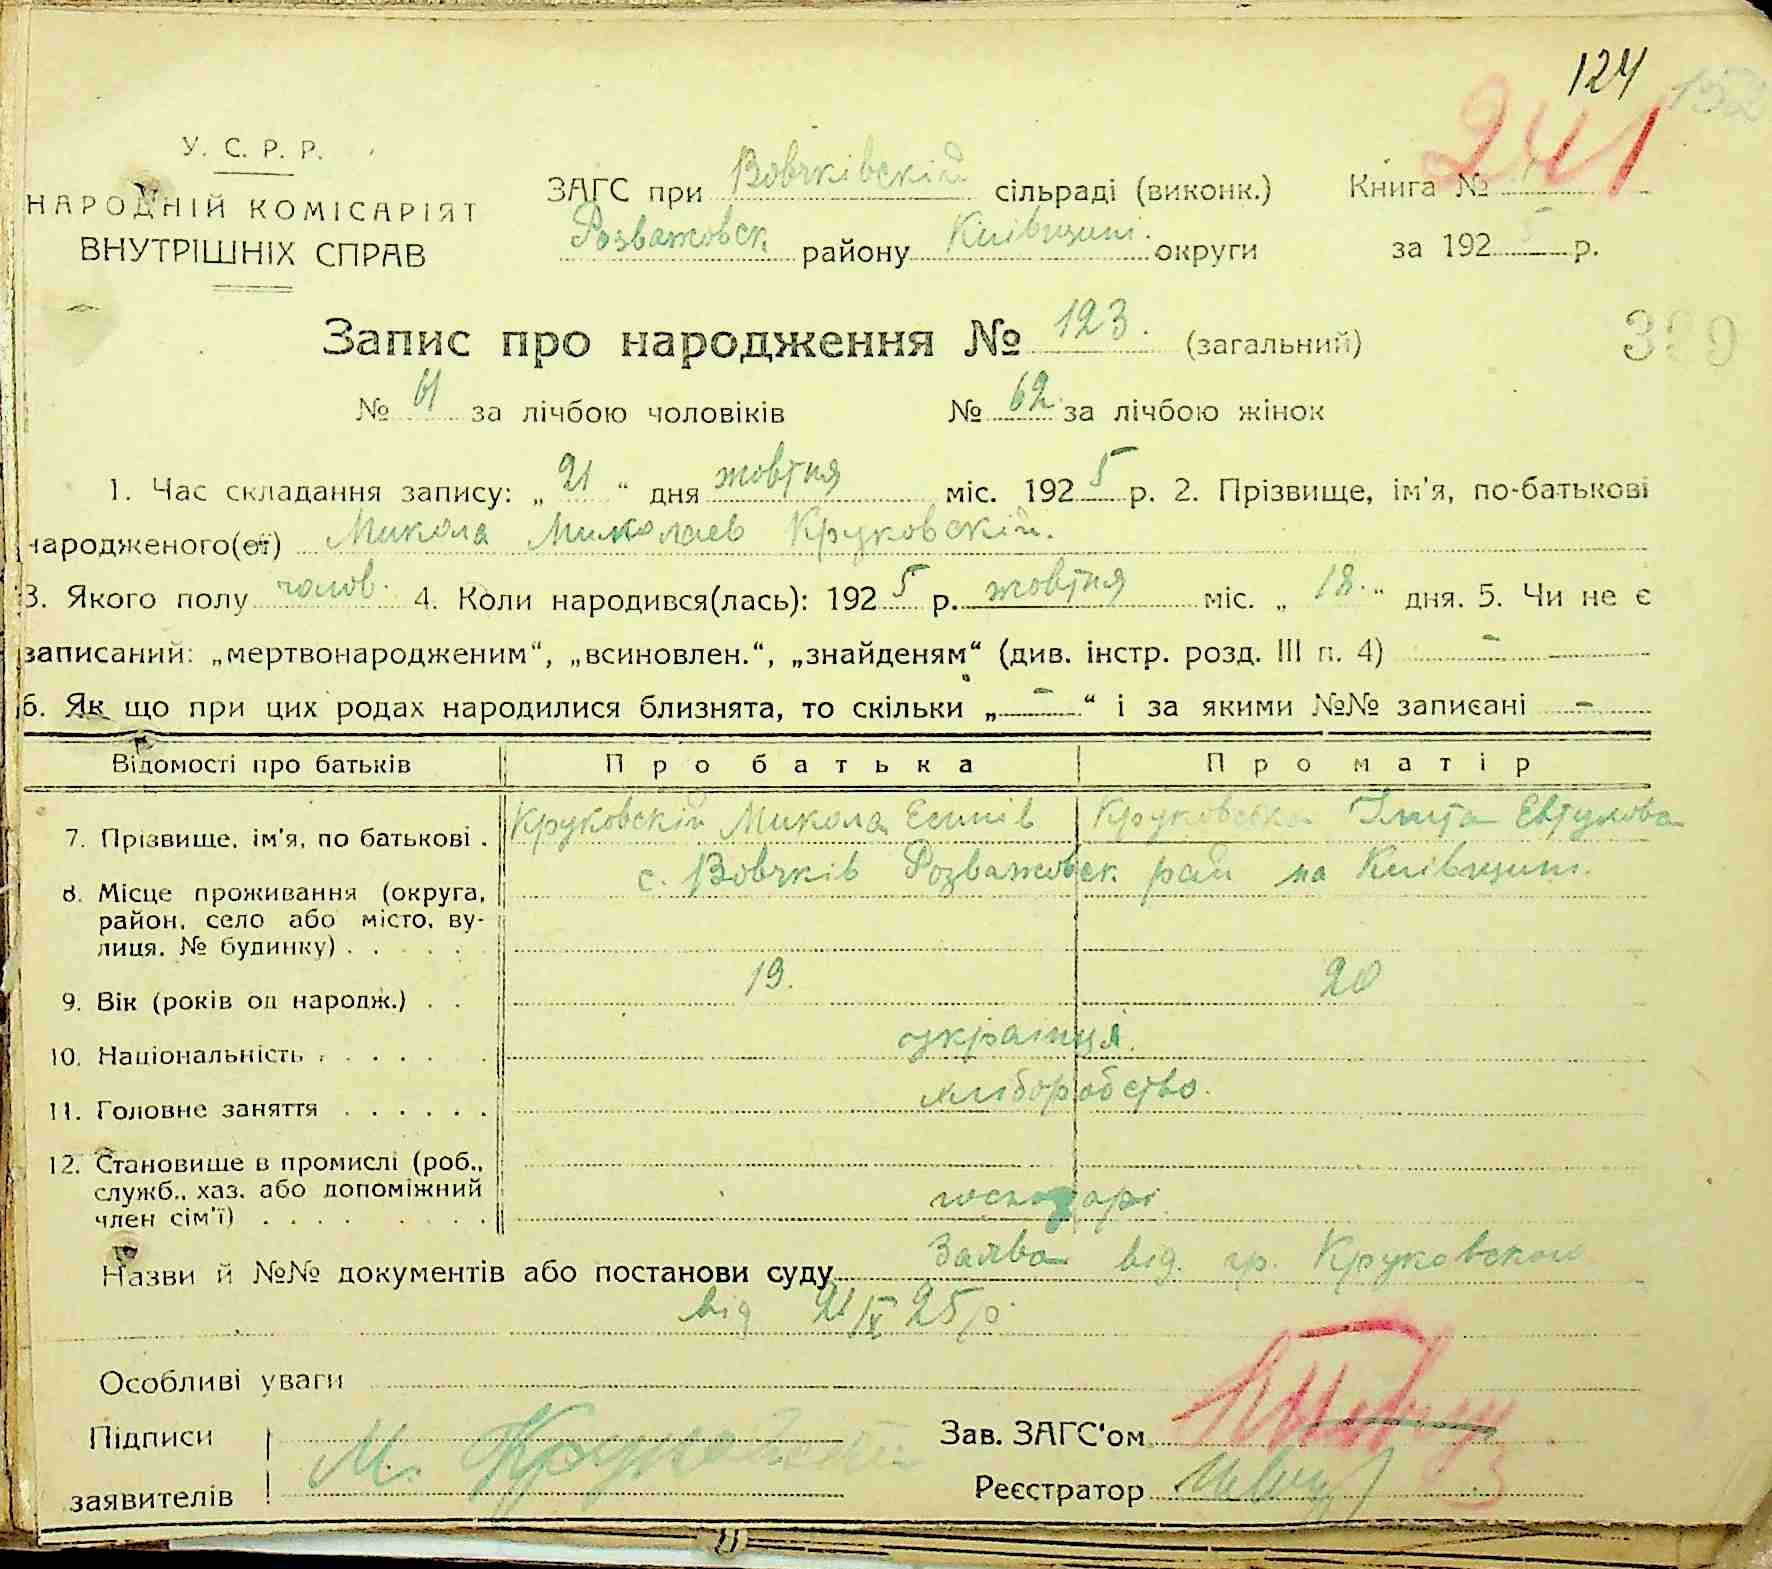 124
241
У. С. Р. Р.
НАРОДНІЙ КОМІСАРІЯТ
ВНУТРІШНІХ СПРАВ
ЗАГС при Вовчківскій сільраді (виконк.) Книга №
Розважовск району Київщині. округи за 1925 р.
Запис про народження № 123. (загальний)
№ 61 за лічбою чоловіків № 62 за лічбою жінок
1. Час складання запису: „21“ дня жовтня міс. 1925 р. 2. Прізвище, ім'я, по-батькові
народженого(ої) Микола Миколаев Круковскій.
3. Якого полу чолов. 4. Коли народився(лась): 1925 р. жовтня міс. „18.“ дня. 5. Чи не є
записаний: „мертвонародженим“, „всиновлен.“, „знайденям“ (див. інстр. розд. III п. 4) –
6. Як що при цих родах народилися близнята, то скільки „–“ і за якими №№ записані –
Відомості про батьків Про батька Про матір
7. Прізвище, ім'я, по батькові . Круковскій Микола Есипів Круковська Евтухова
с. Вовчків Розважовск рай на Київщині.
8. Місце проживання (округа,
район, село або місто, ву-
лиця, № будинку) . . . .
9. Вік (років од народж.) . . 19. 20
10. Національність . . . . . . українця.
11. Головне заняття . . . . . . хліборобство.
12. Становище в промислі (роб.,
служб., хаз. або допоміжний
член сім'ї) . . . . . . . . господарі
Назви й №№ документів або постанови суду Заява від гр. Круковского
від 21/IX 25 р.
Особливі уваги
Підписи
М. Круковский
заявителів
Зав. ЗАГС'ом
Реєстратор